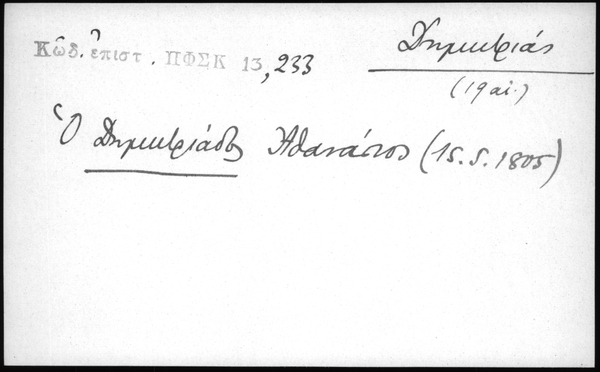 Κῶδ. ἐπιστ. ΠΦΣΚ 13, 233
Δημητριάς
(19 αἰ.)
Ὁ Δημητριάδος Ἀθανάσιος (15.5.1805)